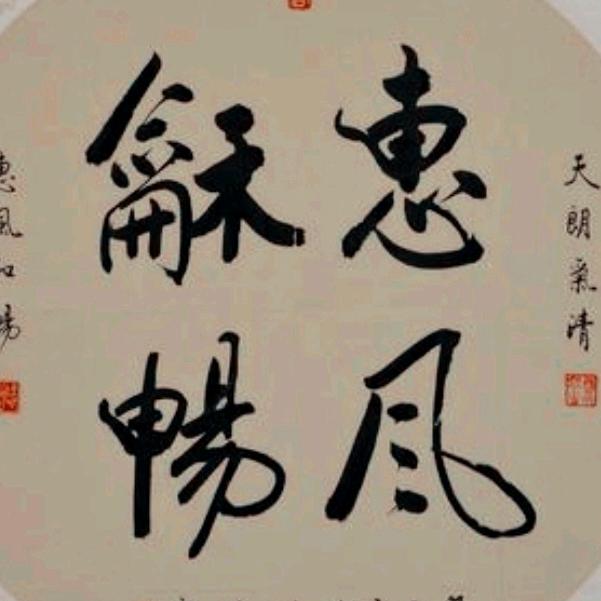 惠風
龢暢
天朗氣清
惠風和暢